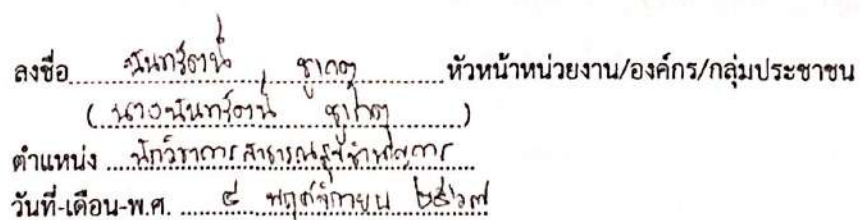 ลงชื่อ นันทรัตน์ ชูเกตุ หัวหน้าหน่วยงาน/องค์กร/กลุ่มประชาชน
( นางนันทรัตน์ ชูเกตุ )
ตำแหน่ง นักวิชาการสาธารณสุขชำนาญการ
วันที่-เดือน-พ.ศ. ๔ พฤศจิกายน ๒๕๖๗